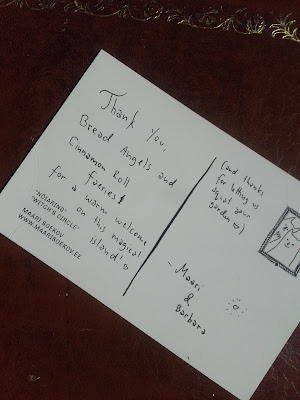 Thank you,
Bread Angels and
Cinnamon Roll
faeries!
for a warm welcome
on this magical
island!
"NÕIARING"
"WITCH'S CIRCLE"
MAARI SOEKOV
WWW.MAARISOEKOV.EE
(and thanks
for letting us
squat your
garden :)
- Maari
&
Barbara